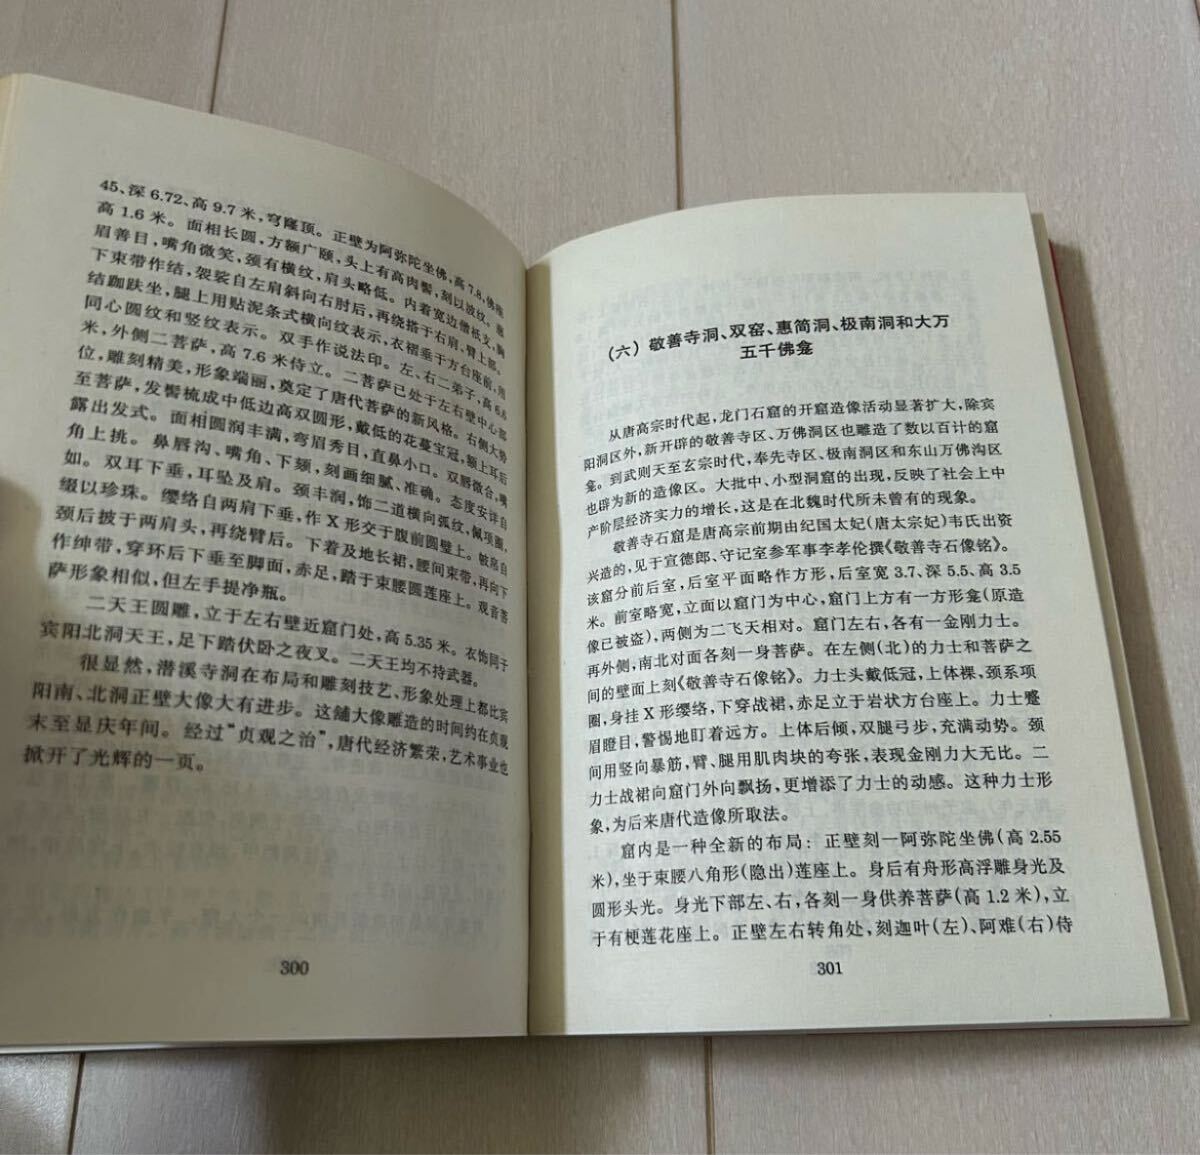 45、深 6.72、高 9.7 米，穹隆顶。正壁为阿弥陀坐佛，高 7.8，佛座
高 1.6 米。面相长圆，方额广颐，头上有高肉髻，刻以波纹。慈
眉善目，嘴角微笑，颈有横纹，肩头略低。内着宽边僧祇支，胸
下束带作结，袈裟自左肩斜向右肘后，再绕搭于右肩，臂上部。
结跏趺坐，腿上用贴泥条式横向纹表示，衣褶垂于方台座前，用
同心圆纹和竖纹表示。双手作说法印。左、右二弟子，高 6.6
米，外侧二菩萨，高 7.6 米侍立。二菩萨已处于左右壁中心部
位，雕刻精美，形象端丽，奠定了唐代菩萨的新风格。右侧大势
至菩萨，发髻梳成中低边高双圆形，戴低的花蔓宝冠，额上耳后
露出发式。面相圆润丰满，弯眉秀目，直鼻小口。双唇微合，嘴
角上挑。鼻唇沟、嘴角、下颏，刻画细腻、准确。态度安详自
如。双耳下垂，耳坠及肩。颈丰润，饰二道横向弧纹，佩项圈，
缀以珍珠。缨络自两肩下垂，作 X 形交于腹前圆璧上。帔帛自
颈后披于两肩头，再绕臂后。下着及地长裙，腰间束带，再向下
作绅带，穿环后下垂至脚面，赤足，踏于束腰圆莲座上。观音菩
萨形象相似，但左手提净瓶。
二天王圆雕，立于左右壁近窟门处，高 5.35 米。衣饰同于
宾阳北洞天王，足下踏伏卧之夜叉。二天王均不持武器。
很显然，潜溪寺洞在布局和雕刻技艺、形象处理上都比宾
阳南、北洞正壁大像大有进步。这舖大像雕造的时间约在贞观
末至显庆年间。经过“贞观之治”，唐代经济繁荣，艺术事业也
掀开了光辉的一页。
300
（六）敬善寺洞、双窑、惠简洞、极南洞和大万
五千佛龛
从唐高宗时代起，龙门石窟的开窟造像活动显著扩大，除宾
阳洞区外，新开辟的敬善寺区、万佛洞区也雕造了数以百计的窟
龛。到武则天至玄宗时代，奉先寺区、极南洞区和东山万佛沟区
也辟为新的造像区。大批中、小型洞窟的出现，反映了社会上中
产阶层经济实力的增长，这是在北魏时代所未曾有的现象。
敬善寺石窟是唐高宗前期由纪国太妃(唐太宗妃)韦氏出资
兴造的，见于宣德郎、守记室参军事李孝伦撰《敬善寺石像铭》。
该窟分前后室，后室平面略作方形，后室宽 3.7、深 5.5、高 3.5
米。前室略宽，立面以窟门为中心，窟门上方有一方形龛(原造
像已被盗)，两侧为二飞天相对。窟门左右，各有一金刚力士。
再外侧，南北对面各刻一身菩萨。在左侧(北)的力士和菩萨之
间的壁面上刻《敬善寺石像铭》。力士头戴低冠，上体裸，颈系项
圈，身挂 X 形缨络，下穿战裙，赤足立于岩状方台座上。力士蹙
眉瞪目，警惕地盯着远方。上体后倾，双腿弓步，充满动势。颈
间用竖向暴筋，臂、腿用肌肉块的夸张，表现金刚力大无比。二
力士战裙向窟门外向飘扬，更增添了力士的动感。这种力士形
象，为后来唐代造像所取法。
窟内是一种全新的布局：正壁刻一阿弥陀坐佛(高 2.55
米)，坐于束腰八角形(隐出)莲座上。身后有舟形高浮雕身光及
圆形头光。身光下部左、右，各刻一身供养菩萨(高 1.2 米)，立
于有梗莲花座上。正壁左右转角处，刻迦叶(左)、阿难(右)侍
301